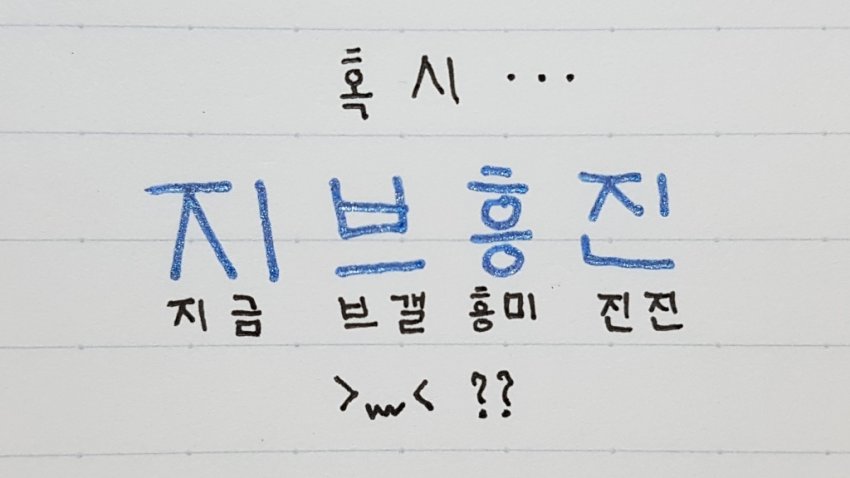 혹시...
지브흥진
지금 브갤 흥미 진진
>﹏< ??